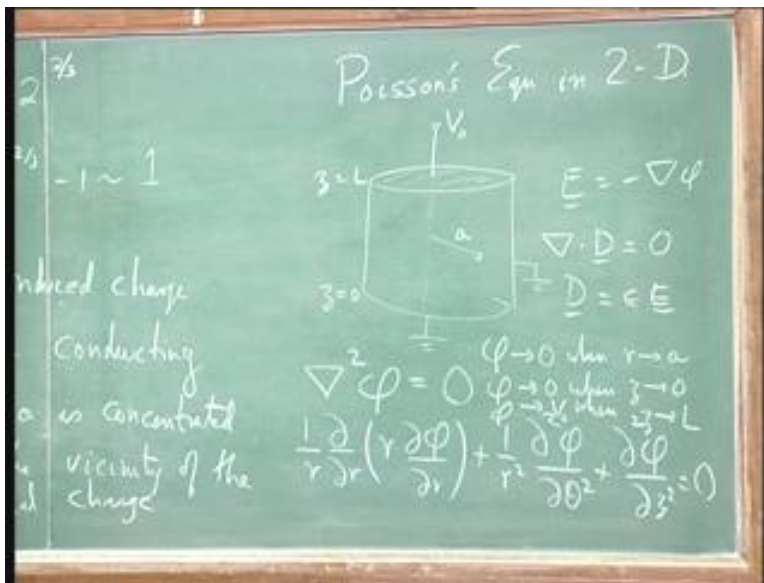 2 2/3
2/3
- 1 ~ 1
induced charge
conducting
is concentrated
vicinity of the
charge
Poisson's Eqn in 2-D
V₀
z=L
a
z=0
E = -∇φ
∇·D = 0
D = ϵ E
∇²φ = 0
φ→0 when r→a
φ→0 when z→0
φ→V₀ when z→L
1/r ∂/∂r (r ∂φ/∂r) + 1/r² ∂φ/∂θ² + ∂φ/∂z² = 0